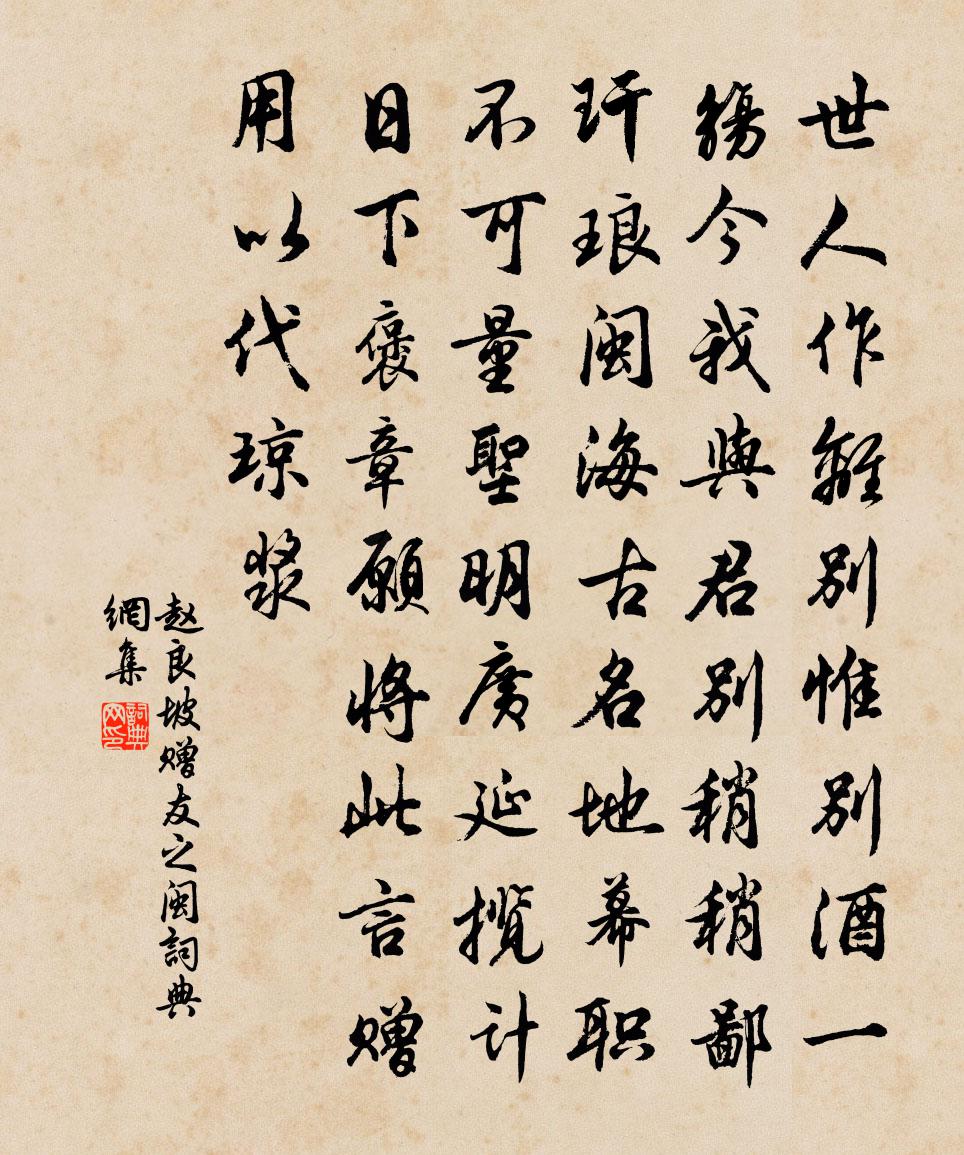 世人作離別惟別酒一
觴今我與君別稍稍鄙
玕琅闽海古名地幕职
不可量聖明廣延揽计
日下褒章願将此言赠
用以代琼浆
赵良坡赠友之闽詞典
網集
詞典
网印